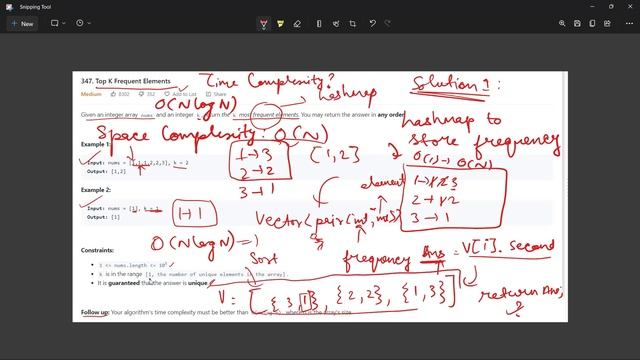 Snipping Tool
New
347. Top K Frequent Elements
Time Complexity?
Solution 1:
Medium
8302
352
Add to List
Share
O(NlogN)
hashmap
Given an integer array nums and an integer k, return the k most frequent elements. You may return the answer in any order.
hashmap to
store frequency
Space Complexity: O(N)
O(1) → O(N)
Example 1:
Input: nums = [1,1,1,2,2,3], k = 2
Output: [1,2]
1→3
2→2
3→1
[1,2]
element
1→1 2 3
2→1 2
3→1
Example 2:
Input: nums = [1], k = 1
Output: [1]
1→1
vector<pair<int, int>>
O(NlogN) =>
frequency
Ans = V[i].second
Constraints:
1 <= nums.length <= 10^5
k is in the range [1, the number of unique elements in the array].
It is guaranteed that the answer is unique.
Sort
V = [{3,1}, {2,2}, {1,3}]
return Ans;
Follow up: Your algorithm's time complexity must be better than
where n is the array's size.